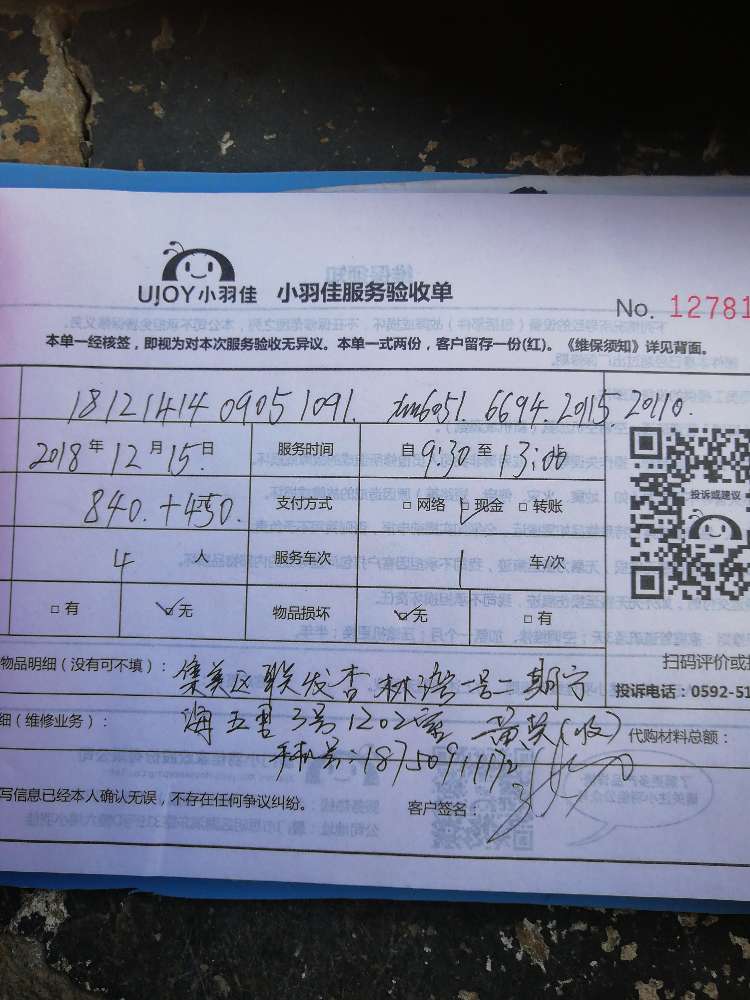 UJOY小羽佳 小羽佳服务验收单
No. 12781
本单一经核签，即视为对本次服务验收无异议。本单一式两份，客户留存一份(红)。《维保须知》详见背面。
18121414 09051091. 6051. 6694. 2015. 2010.
2018年12月15日 服务时间 自9:30至13:00
840.+450. 支付方式 □网络 □现金 □转账
投诉或建议
4人 服务车次 1车/次
□有 □无 物品损坏 □无 □有
扫码评价或
物品明细（没有可不填）： 集美区联发杏林湾一号二期宁
投诉电话：0592-51
细（维修业务）： 海五里3号1202室 黄 (收) 代购材料总额：
手机号:18750911172
写信息已经本人确认无误，不存在任何争议纠纷。 客户签名：